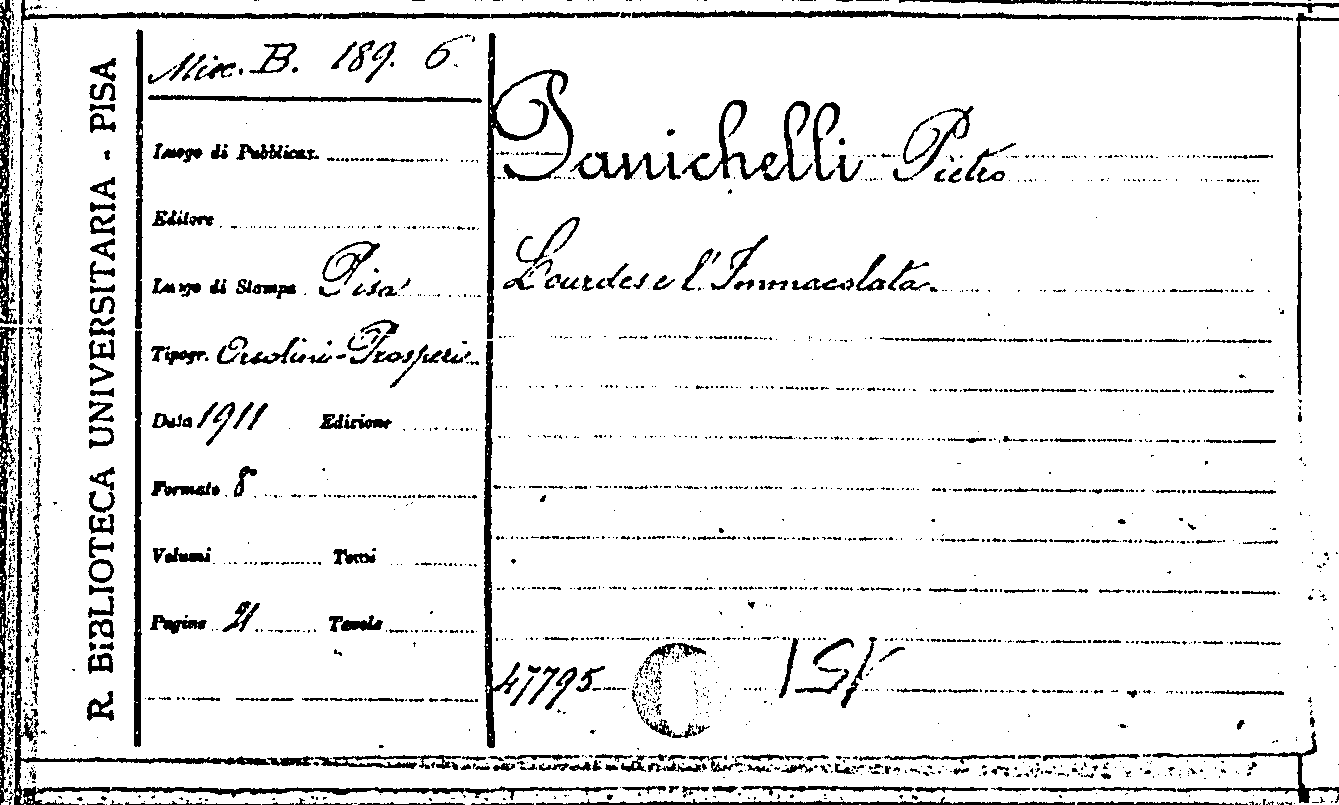 R. BIBLIOTECA UNIVERSITARIA - PISA
Misc. B. 189. 6.
Luogo di Pubblicaz.
Editore
Luogo di Stampa Pisa
Tipogr. Orsolini-Prosperi
Data 1911 Edizione
Formato 8°
Volumi Tomi
Pagine 21 Tavole
Panichelli Pietro
Lourdes e l'Immacolata.
47795